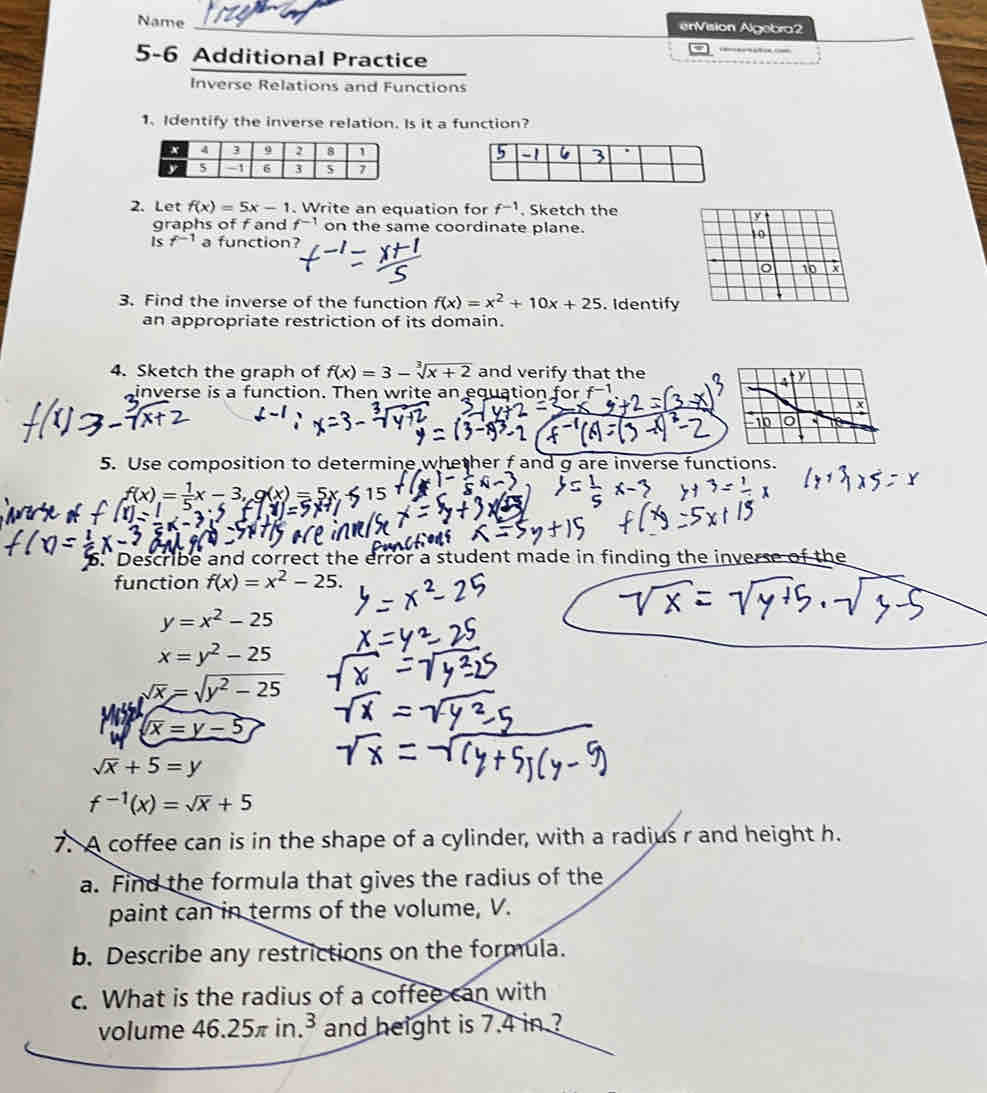 Name
enVision Algebra2
5-6 Additional Practice
Inverse Relations and Functions
1. Identify the inverse relation. Is it a function?
x 4 3 9 2 8 1
y 5 −1 6 3 5 7
5 -1 6 3
2. Let f(x) = 5x − 1. Write an equation for f⁻¹. Sketch the
graphs of f and f⁻¹ on the same coordinate plane.
Is f⁻¹ a function?
f⁻¹ = (x+1)/5
y
10
O 10 x
3. Find the inverse of the function f(x) = x² + 10x + 25. Identify
an appropriate restriction of its domain.
4. Sketch the graph of f(x) = 3 − ∛(x + 2) and verify that the
inverse is a function. Then write an equation for f⁻¹.
4 y
x
−10 O
f(x) 3 - ∛x+2
f-1: x=3-∛y+2
∛y+2 = 3-x
y+2 = (3-x)³
y = (3-x)³-2
f⁻¹(x) = (3-x)³-2
5. Use composition to determine whether f and g are inverse functions.
f(x) = 1/5 x − 3, g(x) = 5x + 15
y = 1/5 x-3
y+3 = 1/5 x
(y+3)x5 = x
inverse of f
x = 5y+15
f(x) = 5x+15
f(x) = 1/5 x-3 and g(x) = 5x+15 are inverse functions
6. Describe and correct the error a student made in finding the inverse of the
function f(x) = x² − 25.
y = x² − 25
x = y² − 25
√x = √(y² − 25)
√x = y − 5
√x + 5 = y
f⁻¹(x) = √x + 5
y = x²-25
x = y²-25
√x = √y²-25
√x = √y²-5
√x = √(y+5)(y-5)
√x = √y+5 . √y-5
7. A coffee can is in the shape of a cylinder, with a radius r and height h.
a. Find the formula that gives the radius of the
paint can in terms of the volume, V.
b. Describe any restrictions on the formula.
c. What is the radius of a coffee can with
volume 46.25π in.³ and height is 7.4 in.?